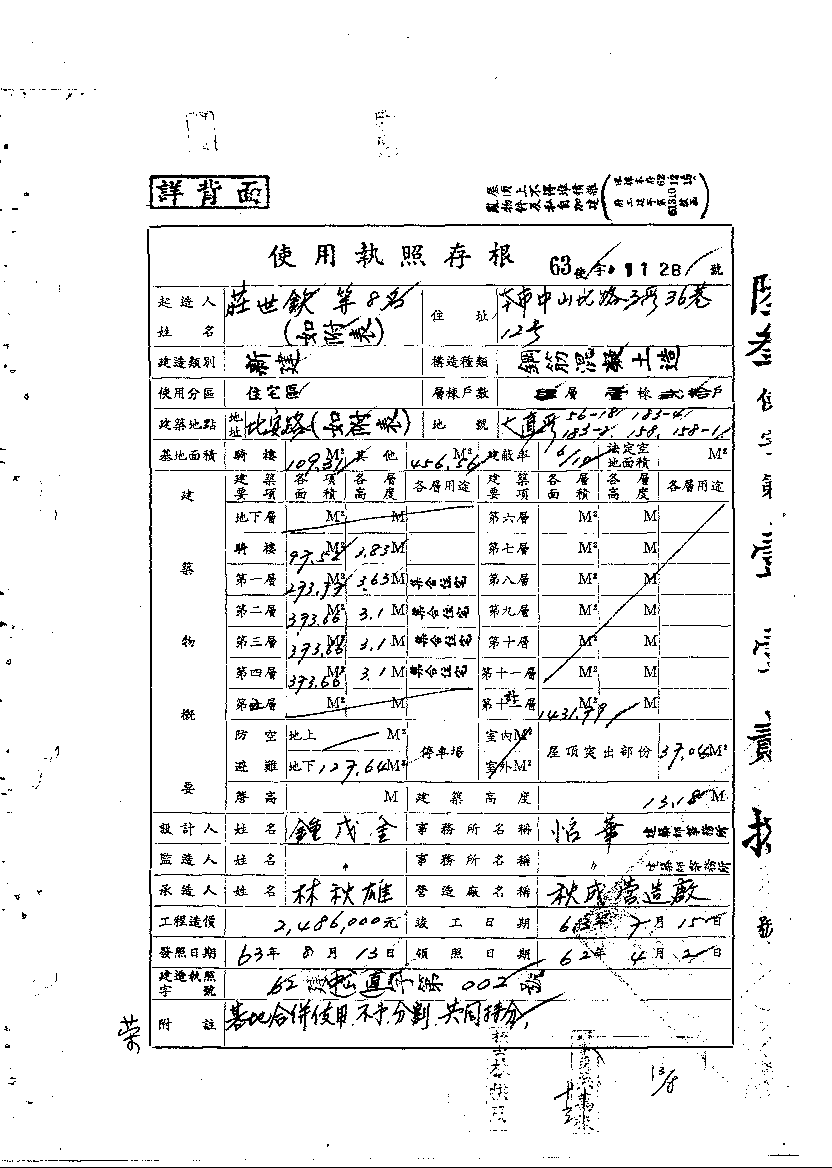 詳背面
屋頂上不得堆積雜
物料及私自加建
使用執照存根 63使字第1128號
起造人姓名 莊世欽等8名(如附表) 住址 本市中山北路3段36巷12号
建造類別 新建 構造種類 鋼筋混凝土造
使用分區 住宅區 層棟戶數 層 棟 戶
建築地點 地址 北安路(如附表) 地號 大直段56-18 183-4 183-8 158 158-1
基地面積 騎樓 109.37 M² 其他 456.56 M² 建蔽率 法定空地面積 M²
建築物概要
建築要項 各項面積 各層高度 各層用途 建築要項 各層面積 各層高度 各層用途
地下層 M² M 第六層 M² M
騎樓 97.52 M² 3.83 M 第七層 M² M
第一層 M² 3.63 M 集合住宅 第八層 M² M
第二層 393.66 M² 3.1 M 集合住宅 第九層 M² M
第三層 393.66 M² 3.1 M 集合住宅 第十層 M² M
第四層 393.66 M² 3.1 M 集合住宅 第十一層 M² M
第 層 M² M 第十二層 計 1431.99 M² M
防空避難 地上 M² 停車場 室內M² 屋頂突出部份 37.04 M²
地下 127.64 M² 室外M²
簷高 M 建築高度 13.18 M
設計人 姓名 鍾茂金 事務所名稱 怡華建築師事務所
監造人 姓名 〃 事務所名稱 〃 建築師事務所
承造人 姓名 林秋雄 營造廠名稱 秋成營造廠
工程造價 2,486,000元 竣工日期 63年7月15日
發照日期 63年8月13日 領照日期 62年4月2日
建造執照字號 62 直 字第002號
附註 基地合併使用不予分割共同持分